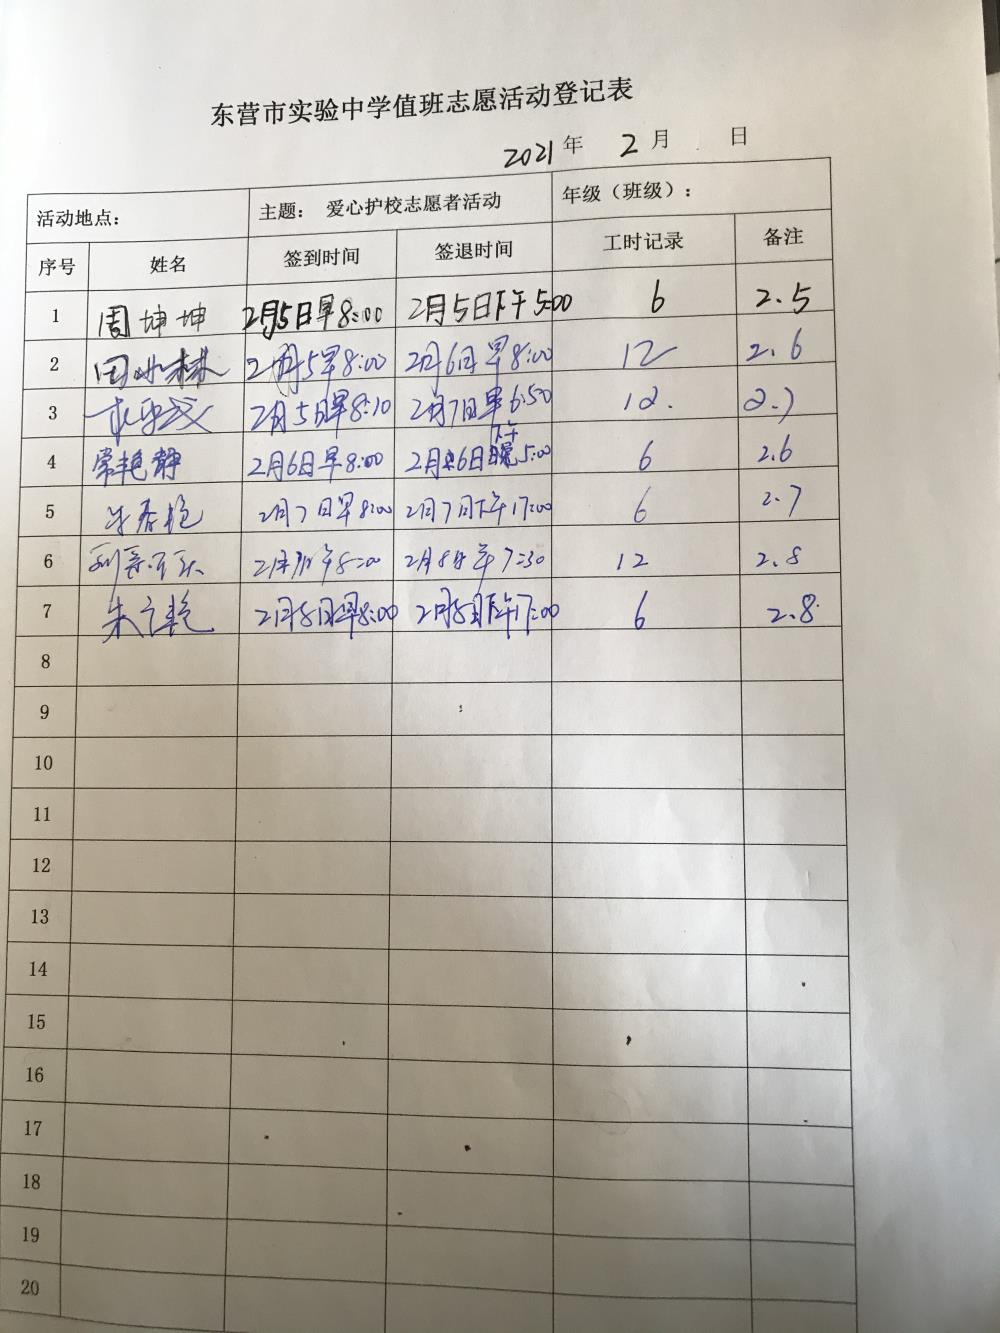 东营市实验中学值班志愿活动登记表
2021年 2月 日
活动地点： 主题： 爱心护校志愿者活动 年级（班级）：
序号 姓名 签到时间 签退时间 工时记录 备注
1 周坤坤 2月5日早8:00 2月5日下午5:00 6 2.5
2 2月5早8:00 2月6日早8:00 12 2.6
3 2月5日早8:10 2月7日早6:50 12. 2.7
4 常艳静 2月6日早8:00 2月6日下午5:00 6 2.6
5 2月7日早8:00 2月7日下午17:00 6 2.7
6 2月8日早7:30 12 2.8
7 朱 艳 2月8日早8:00 2月8日下午17:00 6 2.8
8
9
10
11
12
13
14
15
16
17
18
19
20